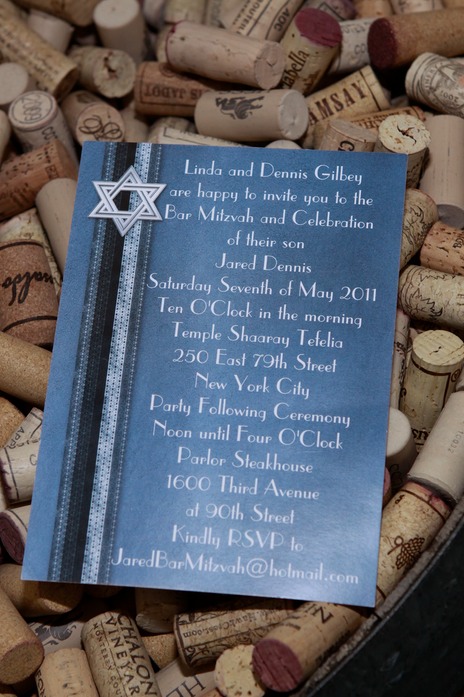 Linda and Dennis Gilbey
are happy to invite you to the
Bar Mitzvah and Celebration
of their son
Jared Dennis
Saturday Seventh of May 2011
Ten O'Clock in the morning
Temple Shaaray Tefelia
250 East 79th Street
New York City
Party Following Ceremony
Noon until Four O'Clock
Parlor Steakhouse
1600 Third Avenue
at 90th Street
Kindly RSVP to
JaredBarMitzvah@hotmail.com
RAMSAY
CHALON
VINEYAR